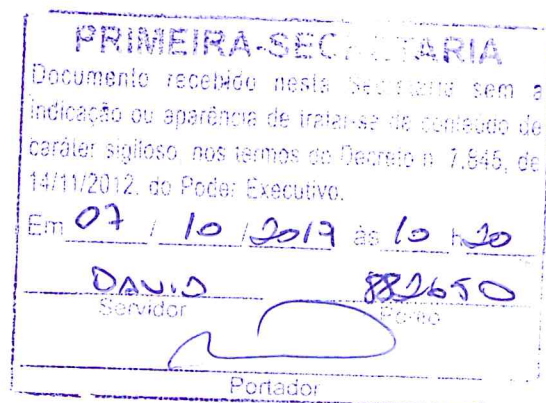 PRIMEIRA-SECRETARIA
Documento recebido nesta Secretaria sem a
indicação ou aparência de tratar-se de conteúdo de
caráter sigiloso, nos termos do Decreto n. 7.845, de
14/11/2012, do Poder Executivo.
Em 07 / 10 / 2019 às 10 h 20
DAVID 882650
Servidor Ponto
Portador